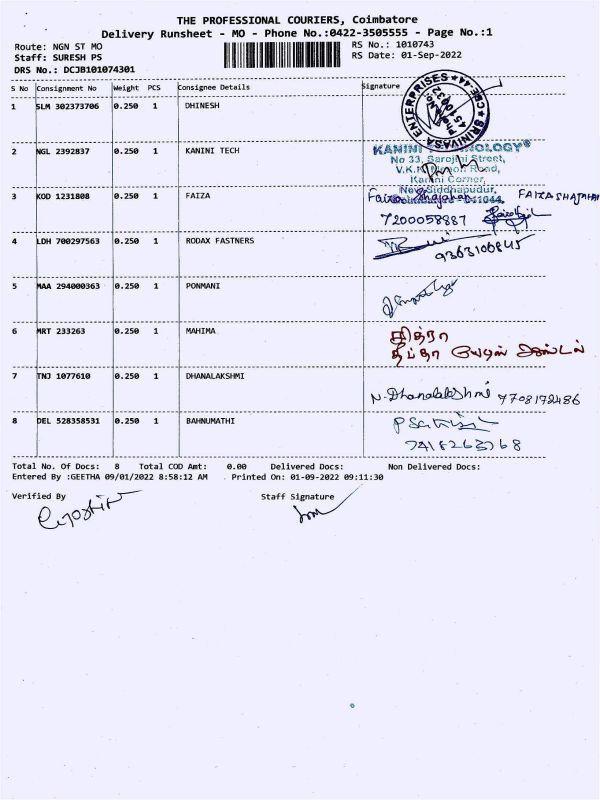 THE PROFESSIONAL COURIERS, Coimbatore
Delivery Runsheet - MO - Phone No.:0422-3505555 - Page No.:1
Route: NGN ST MO
RS No.: 1010743
Staff: SURESH PS
RS Date: 01-Sep-2022
DRS No.: DCJB101074301
S No Consignment No Weight PCS Consignee Details Signature
1 SLM 302373706 0.250 1 DHINESH
SRINIVASA ENTERPRISES
2 NGL 2392837 0.250 1 KANINI TECH
KANINI TECHNOLOGY
No 33, Sarojini Street,
V.K.K Menon Road,
Kanini Corner,
New Siddhapudur,
641044.
3 KOD 1231808 0.250 1 FAIZA
Faiza Shajahan FAIZA SHAJAHAN
7200058887
4 LDH 700297563 0.250 1 RODAX FASTNERS
9363100845
5 MAA 294000363 0.250 1 PONMANI
6 MRT 233263 0.250 1 MAHIMA
சித்ரா
7 TNJ 1077610 0.250 1 DHANALAKSHMI
N. Dhanalakshmi 7708172486
8 DEL 528358531 0.250 1 BAHNUMATHI
7418263768
Total No. Of Docs: 8 Total COD Amt: 0.00 Delivered Docs: Non Delivered Docs:
Entered By :GEETHA 09/01/2022 8:58:12 AM Printed On: 01-09-2022 09:11:30
Verified By Staff Signature